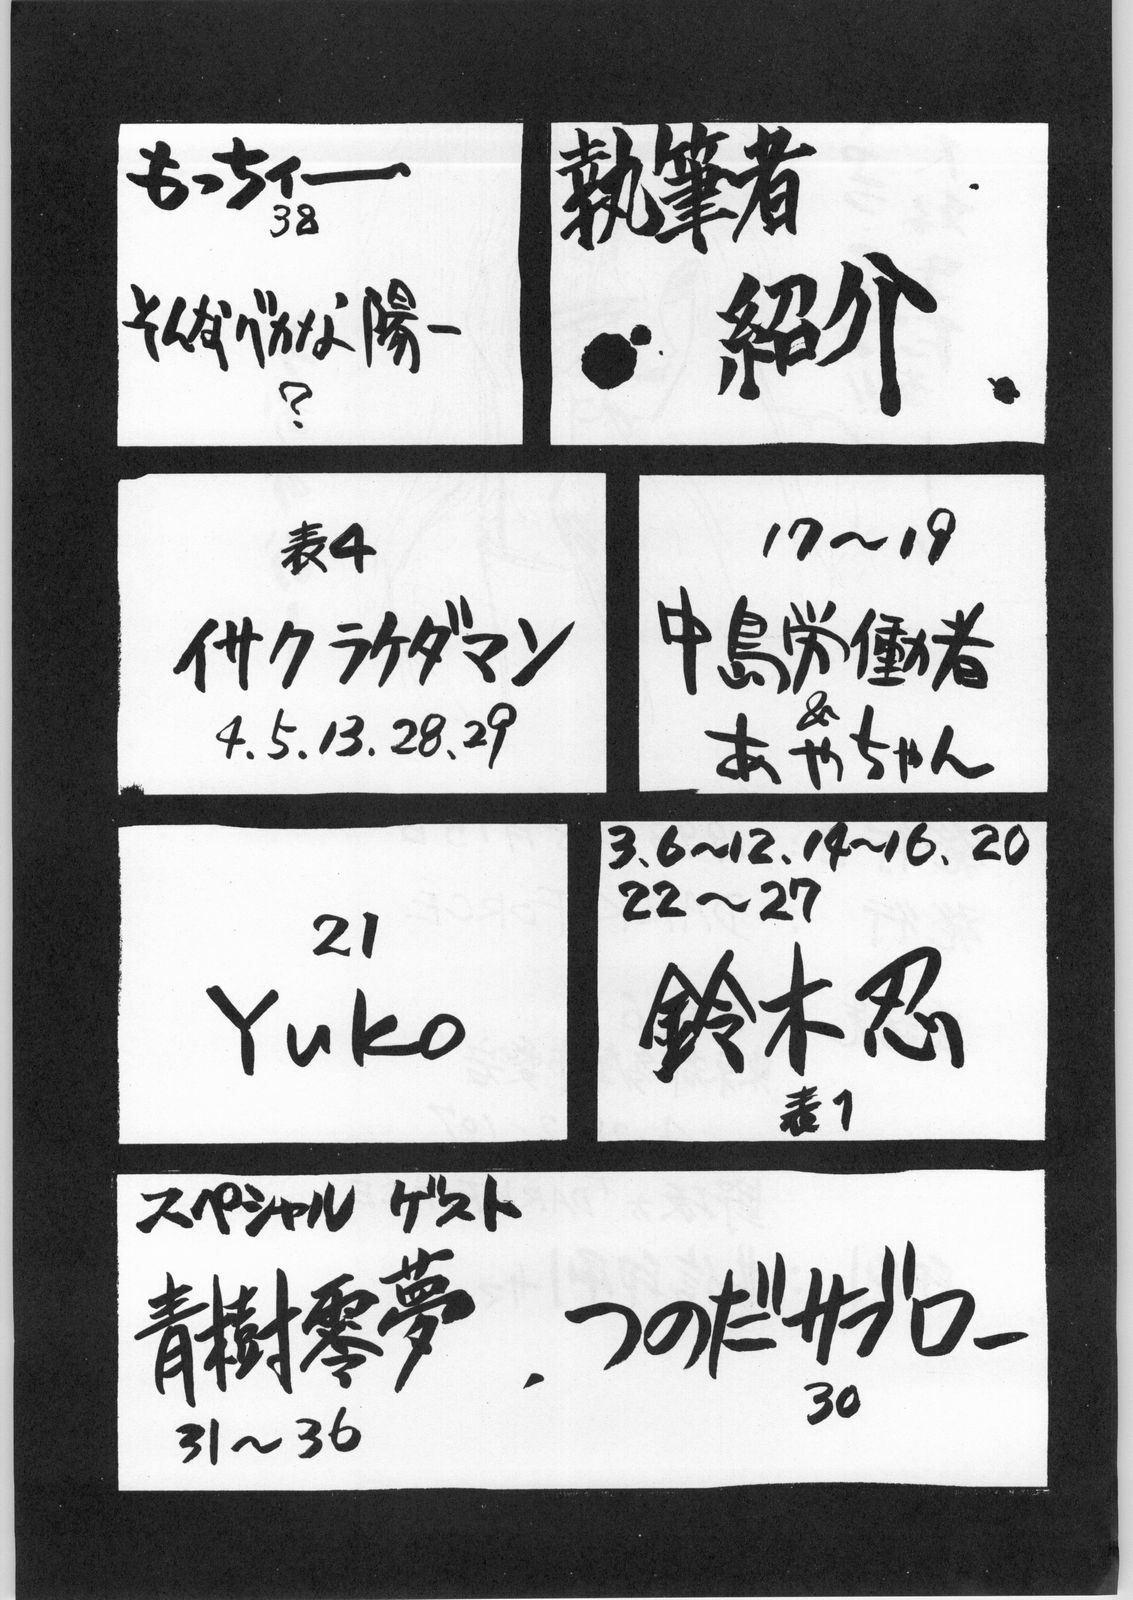 執筆者
紹介
もっちィー
38
そんなバカな 陽一
?
17〜19
中島労働者
&
あやちゃん
表4
イサクラケダマン
4.5.13.28、29
3.6〜12.14〜16.20
22〜27
鈴木忍
表1
21
Yuko
スペシャル ゲスト
青樹零夢、つのだサブロー
31〜36
30